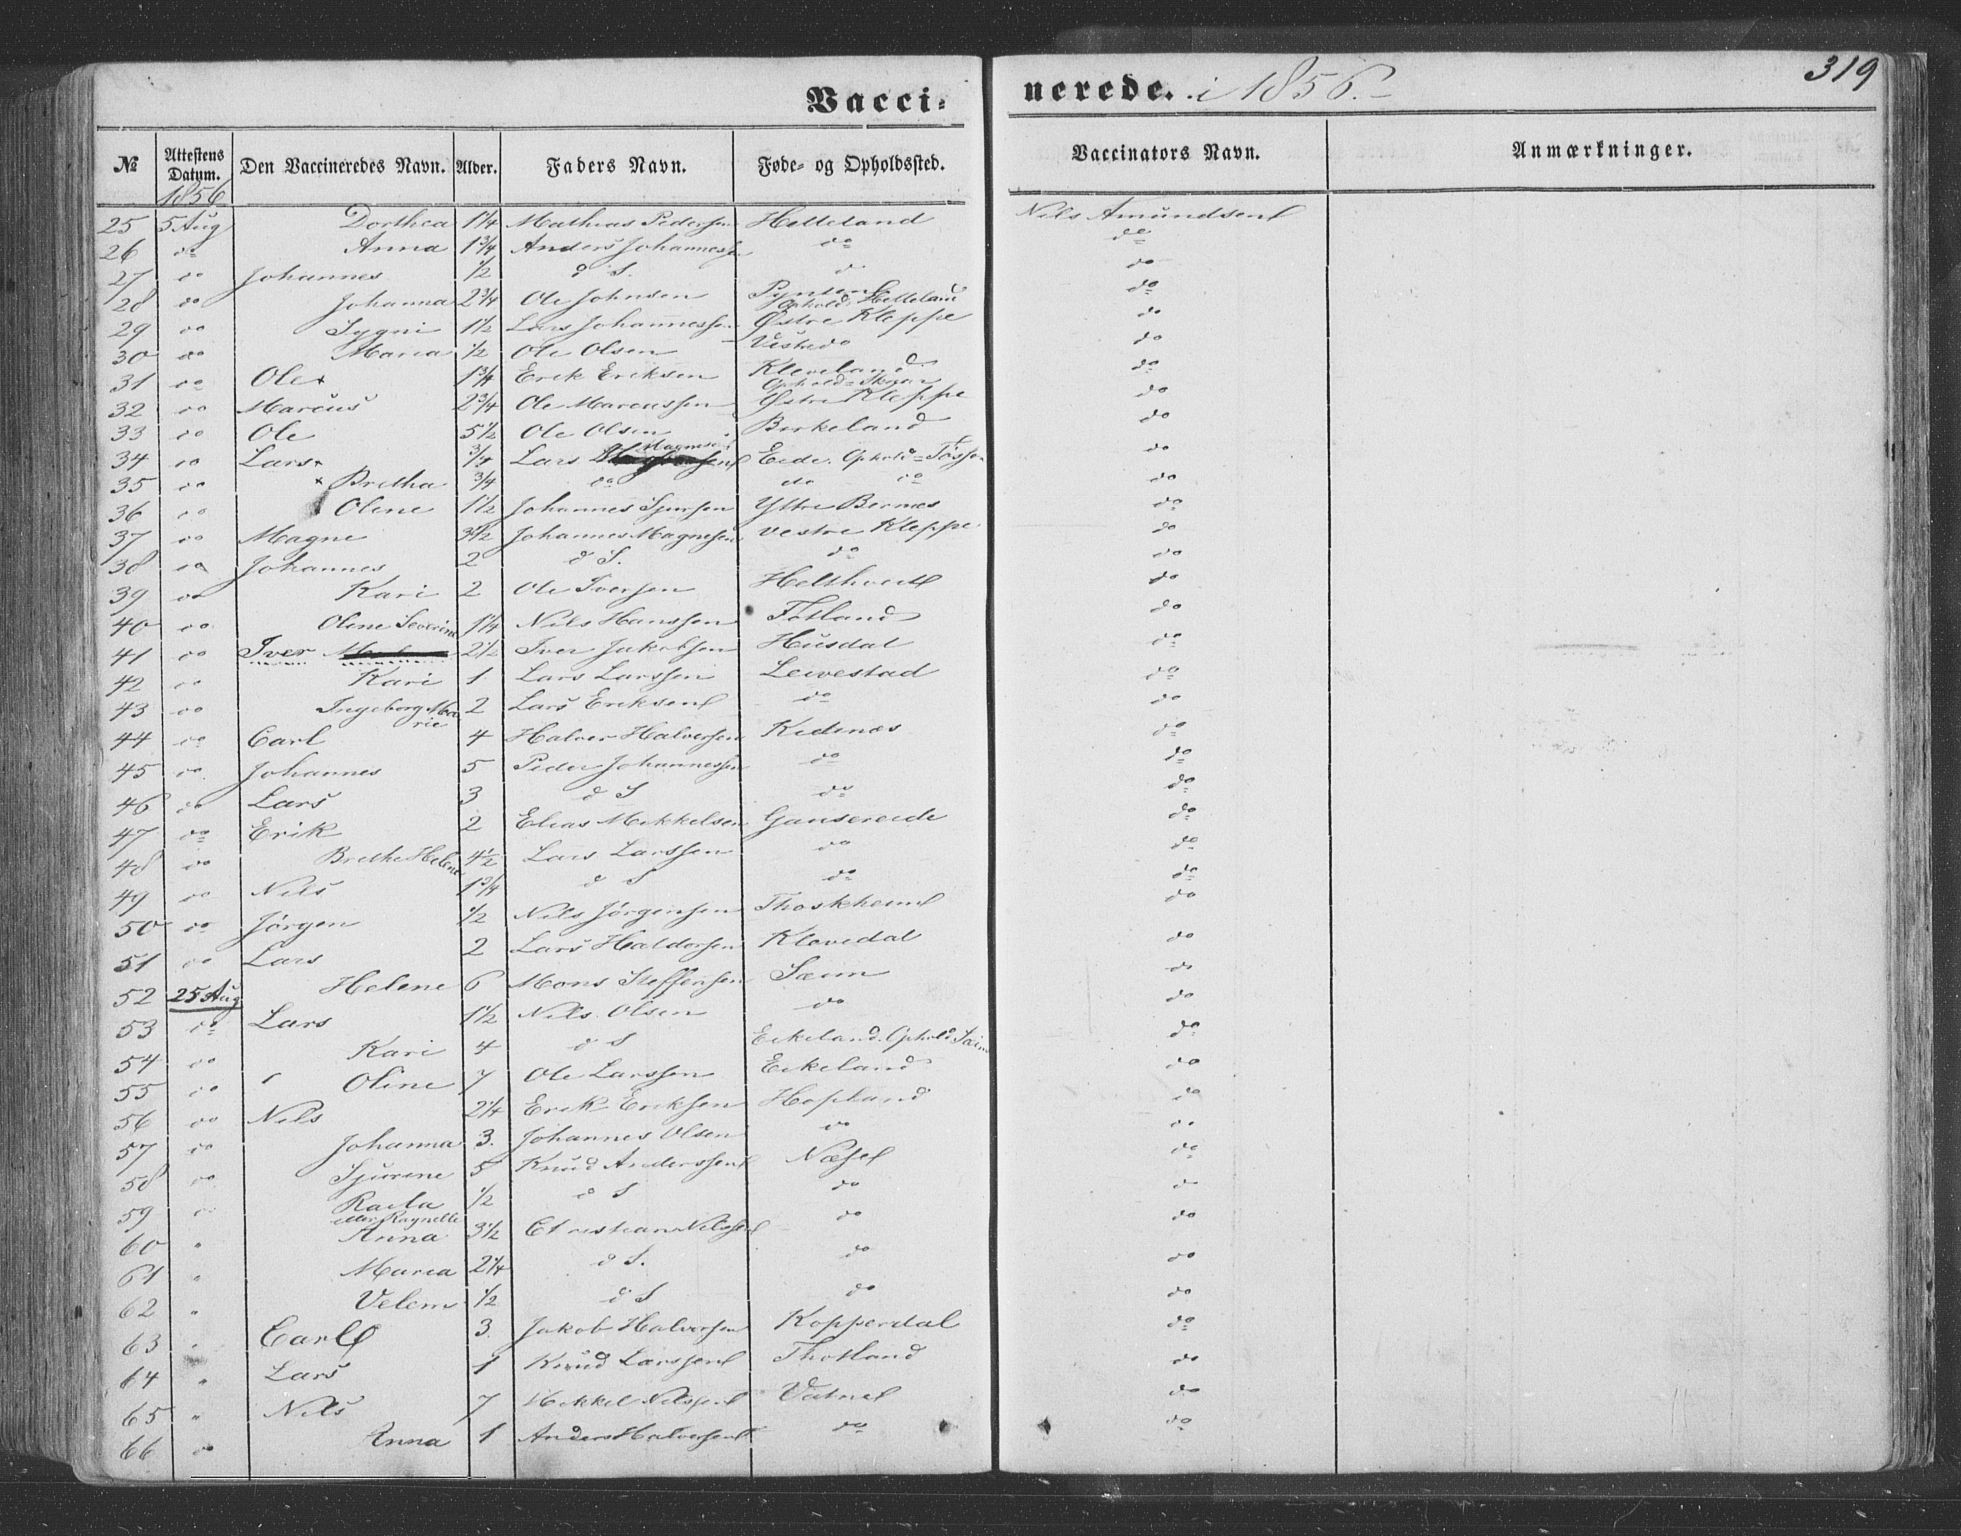 319
Vaccinerede. i 1856.
№ Attestens Datum. Den Vaccineredes Navn. Alder. Faders Navn. Føde- og Opholdssted. Vaccinators Navn. Anmærkninger.
1856
25 5 Aug Dorthea 1¼ Mathias Pedersen Helleland Nils Amundsen
26 do Anna 1¾ Anders Johannessen do do
27 do Johannes ½ d S. do do
28 do Johanna 2¾ Ole Johnsen Pynten Ophold: Helleland do
29 do Sygni 1½ Lars Johannessen Østre Kleppe do
30 do Maria ½ Ole Olsen Vestre do do
31 do Ole 1¾ Erik Eriksen Kleveland Ophold = Skaar do
32 do Marcus 2¾ Ole Marcussen Østre Kleppe do
33 do Ole 5½ Ole Olsen Birkeland do
34 do Lars Lars Magnesen Eide. Ophold = do
35 do Bretha ¾ do do do do
36 do Oline 1½ Johannes Sjursen Yttre Bernes do
37 do Magne 3½ Johannes Magnesen vestre Kleppe do
38 do Johannes 2 d S. do do
39 do Kari 2 Ole Iversen Helthveit do
40 do Oline Severine 1¼ Nils Hanssen Fotland do
41 do Iver 2½ Iver Jakobsen Husdal do
42 do Kari 1 Lars Larssen Leivestad do
43 do Ingeborg Marie 2 Lars Eriksen do do
44 do Carl 4 Halver Halversen Kidenæs do
45 do Johannes 5 Peder Johannessen do do
46 do Lars 3 d S do do
47 do Erik 2 Elias Mikkelsen Gansereide do
48 do Brethe Helene 4½ Lars Larssen do do
49 do Nils 1¾ d S do do
50 do Jørgen ½ Nils Jørgensen Thoskheim do
51 do Lars 2 Lars Haldorsen Klovedal do
52 25 Aug Helene 6 Mons Steffensen Sæim do
53 do Lars 1½ Nils Olsen do do
54 do Kari 4 d S Eikeland. Ophold Sæim do
55 do Oline 7 Ole Larssen Eikeland do
56 do Nils 2¼ Erik Eriksen Hopland do
57 do Johanna 3. Johannes Olsen do do
58 do Sjurine 5 Knud Anderssen Næsse do
59 do Raela eller Ragnelle ½ d S do do
60 " Anna 3½ Christian Nilssen do do
61 " Maria 2¼ d S. do do
62 " Velem ½ d S do do
63 " Carl 3. Jakob Halversen Kopperdal do
64 " Lars 1 Knud Larssen Thotland do
65 " Nils 7 Mikkel Nilssen Vatne do
66 do Anna 1 Anders Halversen do do